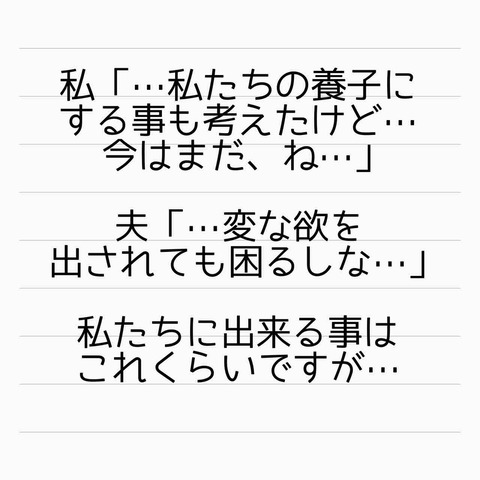 私「…私たちの養子に
する事も考えたけど…
今はまだ、ね…」
夫「…変な欲を
出されても困るしな…」
私たちに出来る事は
これくらいですが…